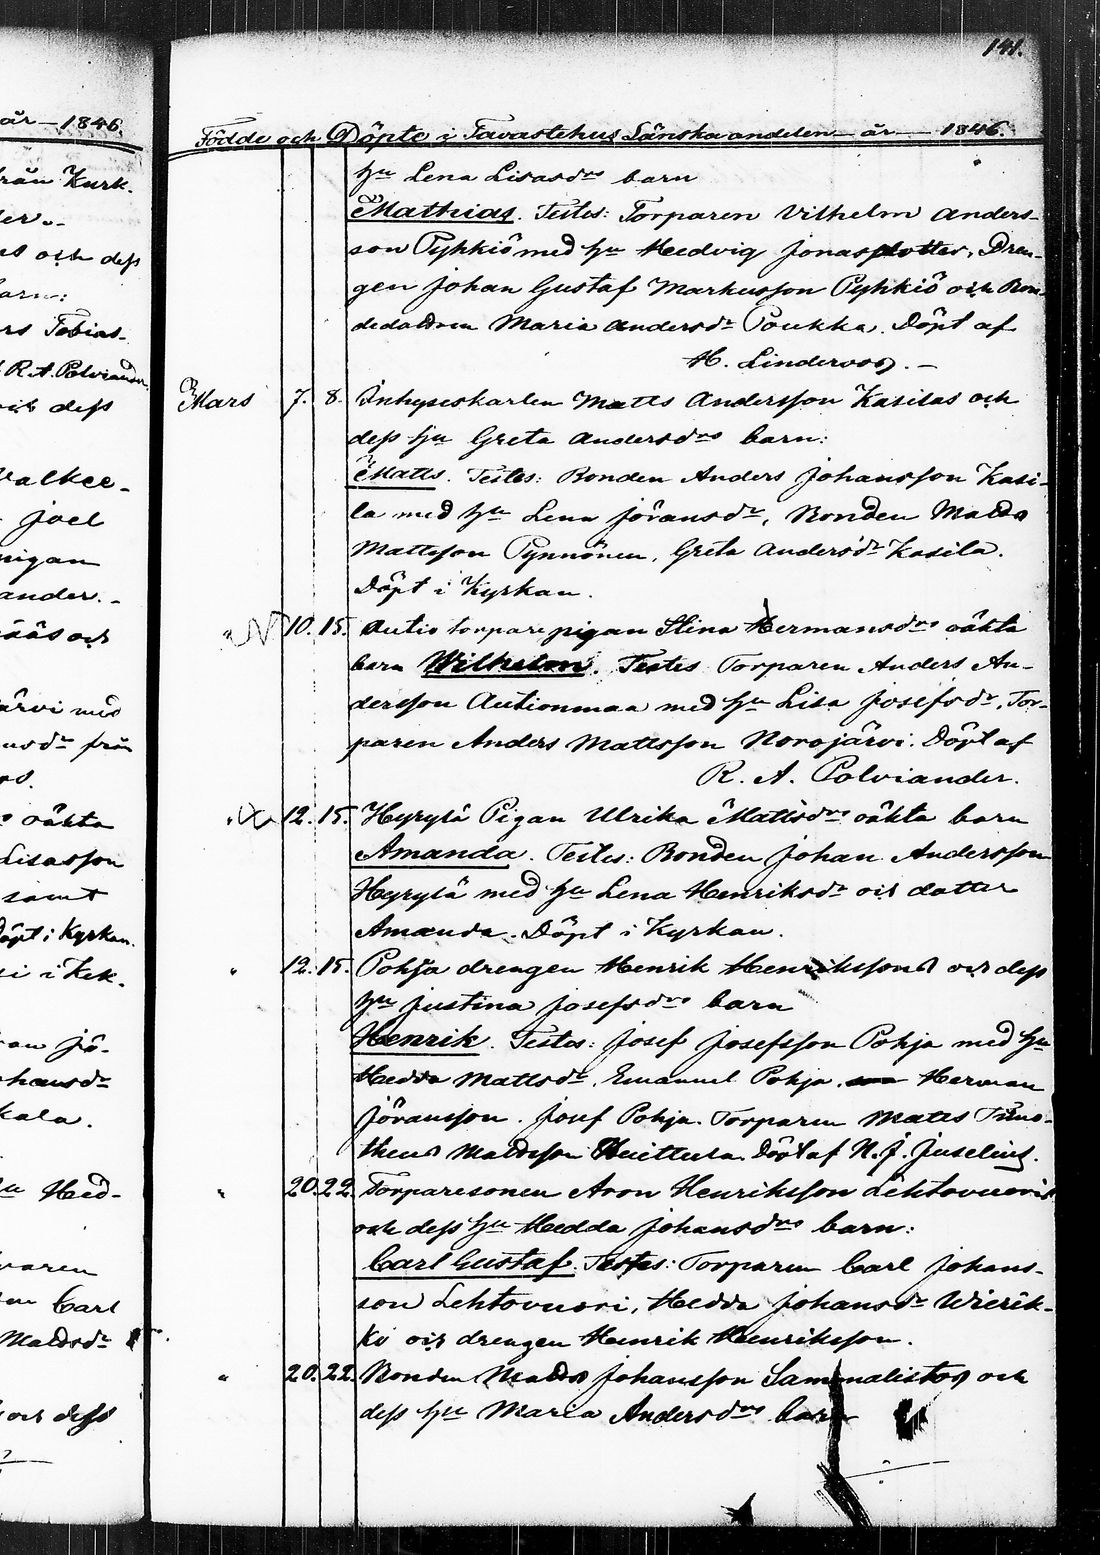 141.
år — 1846.
rån Kurk.
och dess
barn:
Tobias
R. A. Polviander.
och dess
Valkee-
Joel
pigan
ander.
järvi med
från
oäkta
Lisasson
samt
Döpt i Kyrkan.
i Kek.
Jö-
hansdr
kala.
Hed-
Carl
Maldsdr
och dess
Födde och Döpte i Tavastehus Länska andelen år — 1846.
hu Lena Lisasdrs barn
Mathias. Testes: Torparen Vilhelm Anders-
son Pyhkiö med hu Hedvig Jonasdotter, Dren-
gen Johan Gustaf Markusson Pyhkiö och Bon-
dedottren Maria Andersdr Poukka. Döpt af
H. Linderoos. –
Mars 7. 8. Inhyseskarlen Matts Andersson Kasilas och
dess hu Greta Andersdrs barn:
Matts. Testes: Bonden Anders Johansson Kasi-
la med hu Lena Jöransdr, Bonden Malds
Mattsson Pynnönen, Greta Andersdr Kasila.
Döpt i Kyrkan.
" 10. 15. Autio torpare pigan Stina Hermansdrs oäkta
barn Wilhelm. Testes Torparen Anders An-
dersson Autionmaa med hu Lisa Josefsdr, Tor-
paren Anders Mattsson Norojärvi. Döpt af
R. A. Polviander.
" 12. 15. Hyrylä Pigan Ulrika Mattsdrs oäkta barn
Amanda. Testes: Bonden Johan Andersson
Hyrylä med hu Lena Henriksdr och dotter
Amanda. Döpt i Kyrkan.
" 12. 15. Pohja drengen Henrik Henrikssons och dess
hu Justina Josefsdrs barn
Henrik. Testes: Josef Josefsson Pohja med hu
Hedda Mattsdr, Emanuel Pohja, Herman
Jöransson. Josef Pohja. Torparen Matts Timo-
theus Maldsson Huittula. Döpt af N. J. Juselius.
" 20. 22. Torparesonen Aron Henriksson Lehtovuoris
och dess hu Hedda Johansdrs barn:
Carl Gustaf. Testes: Torparen Carl Johans-
son Lehtovuori, Hedda Johansdr Wierik-
ko och drengen Henrik Henriksson.
" 20. 22. Bonden Malds Johansson Sammalistos och
dess hu Maria Andersdrs barn